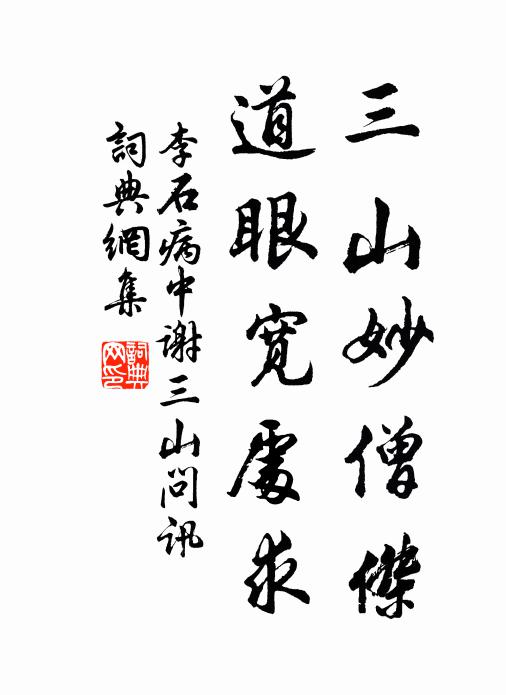 三山妙僧傑
道眼寬處求
李石病中謝三山問訊
詞典網集
詞典網印